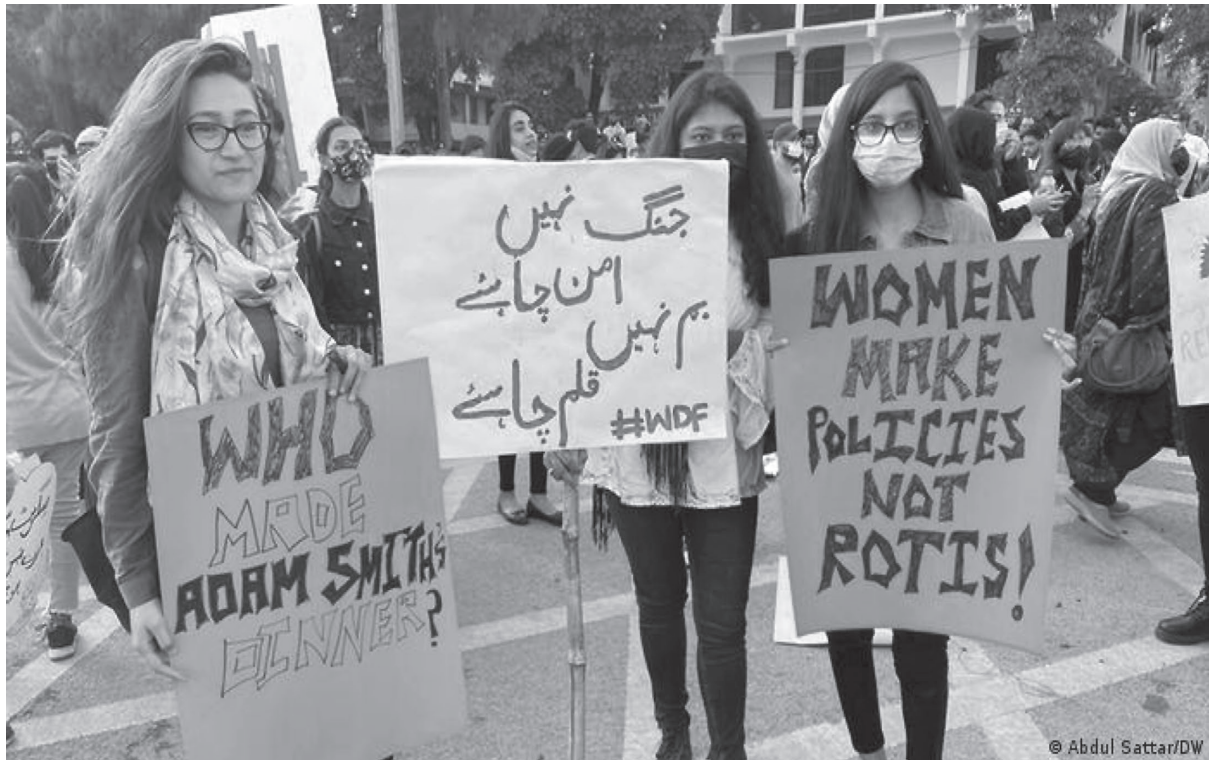 WHO
MADE
ADAM SMITH'S
DINNER?
جنگ نہیں
امن چاہئے
بم نہیں
قلم چاہئے
#WDF
WOMEN
MAKE
POLICIES
NOT
ROTIS!
© Abdul Sattar/DW